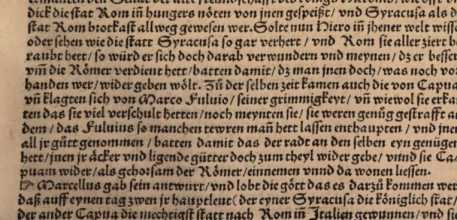 dick die stat Rom iñ hungers nöten von jnen gespeißt/ vnd Syracusa als d
stat Rom brotkast allweg gewesen wer. Solte nun Hiero iñ jhener welt wisse
oder sehen wie die statt Syracusa so gar verhert/ vnd Rom sie aller ziert be
raubt hett/ so würd er sich doch darab verwundern vnd meynen/ dz er besser
vm̃ die Römer verdient hett/ batten damit/ dz man jnen doch/ was noch vor
handen wer/ wider geben wölt. Zů der selben zeit kamen auch die von Capua
vñ klagten sich von Marco Fuluio/ seiner grimmigkeyt/ vñ wiewol sie erka
ten das sie viel verschult hetten/ noch meynten sie/ sie weren genůg gestrafft an
dem/ das Fuluius so manchen tewren mañ hett lassen enthaupten/ vnd jnen
all jr gůtt genommen/ batten damit das der radt an den selben eyn genügen
hett/ jnen jr äcker vnd ligende gütter doch zum theyl wider gebe/ vnnd sie Ca
puam wider/ als gehorsam der Römer/ einnemen vnnd da wonen liessen.
☞ Marcellus gab sein antwurt/ vnd lobt die gött das es darzů kommen wer
daß auff eynen tag zwen jr hauptleut/ der eyner Syracusa die königlich stat/
der ander Capua die mechtigst statt nach Rom iñ Italien gewunnen/ vnd